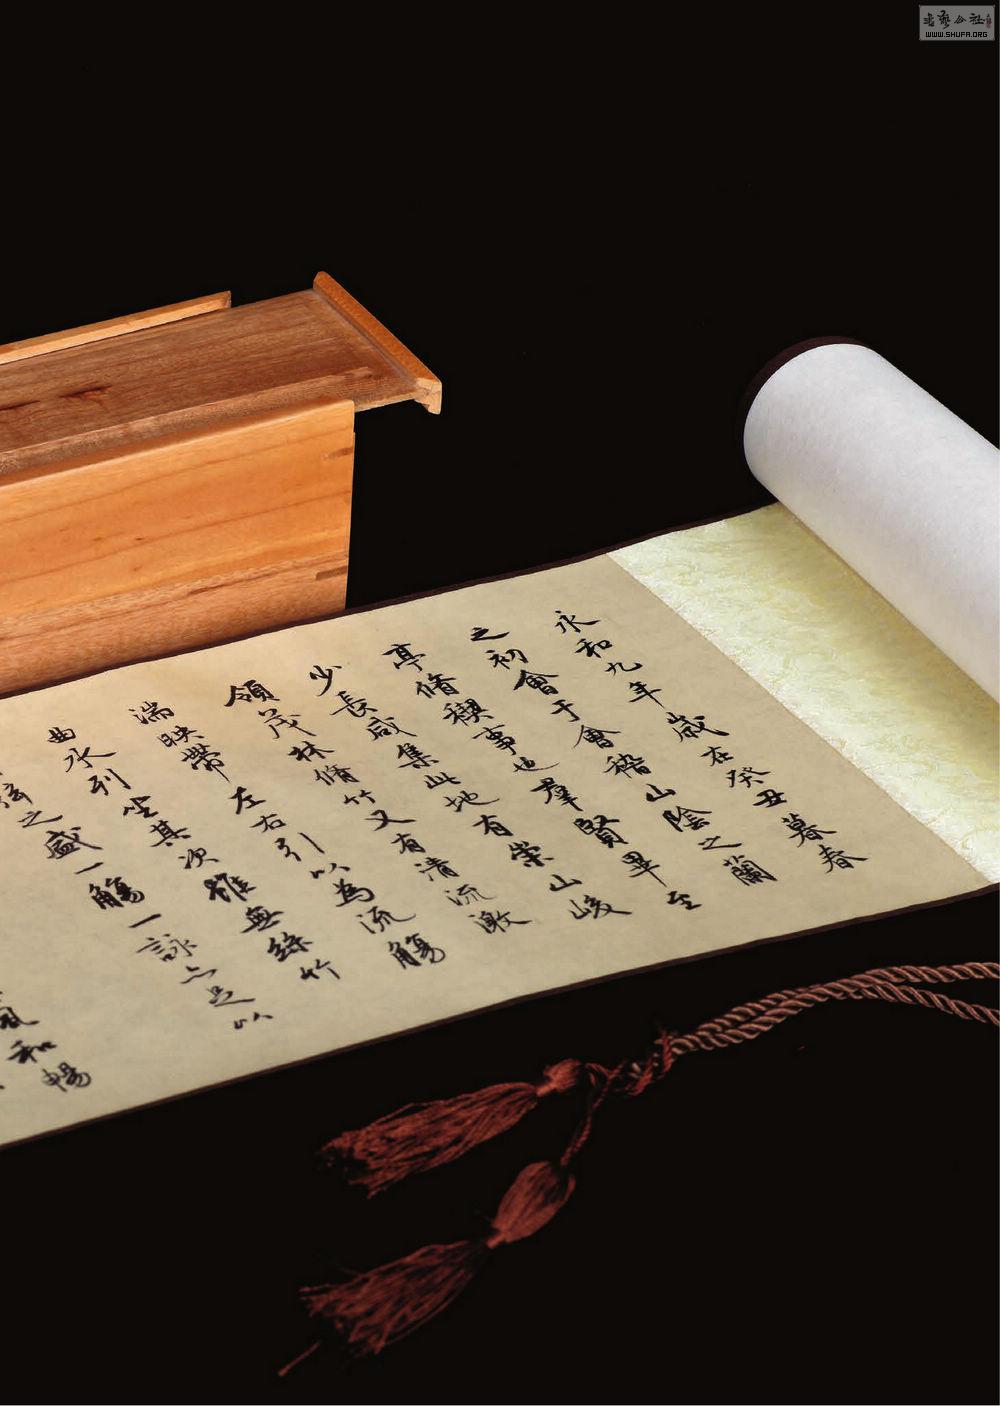 永和九年歲在癸丑暮春
之初會于會稽山陰之蘭
亭脩稧事也羣賢畢至
少長咸集此地有崇山峻
領茂林脩竹又有清流激
湍映帶左右引以為流觴
曲水列坐其次雖無絲竹
弦之盛一觴一詠亦足以
氣和暢
書藝公社
WWW.SHUFA.ORG